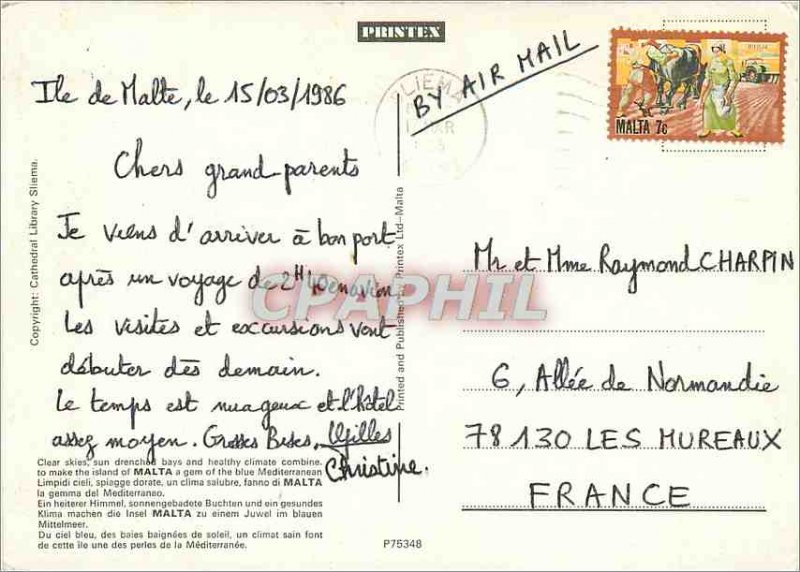 PRINTEX
BY AIR MAIL
SLIEMA
MALTA 7c
Ile de Malte, le 15/03/1986
Chers grand-parents
Je viens d'arriver à bon port
après un voyage de 2H40 en avion
Les visites et excursions vont
débuter dès demain.
Le temps est nuageux et l'hôtel
assez moyen. Grosses Bises. Gilles
Christine.
Mr et Mme Raymond CHARPIN
6, Allée de Normandie
78130 LES MUREAUX
FRANCE
CPAPHIL
Copyright: Cathedral Library Sliema.
Printed and Published by Printex Ltd-Malta
Clear skies, sun drenched bays and healthy climate combine.
to make the island of MALTA a gem of the blue Mediterranean
Limpidi cieli, spiagge dorate, un clima salubre, fanno di MALTA
la gemma del Mediterraneo.
Ein heiterer Himmel, sonnengebadete Buchten und ein gesundes
Klima machen die Insel MALTA zu einem Juwel im blauen
Mittelmeer.
Du ciel bleu, des baies baignées de soleil, un climat sain font
de cette île une des perles de la Méditerranée.
P75348